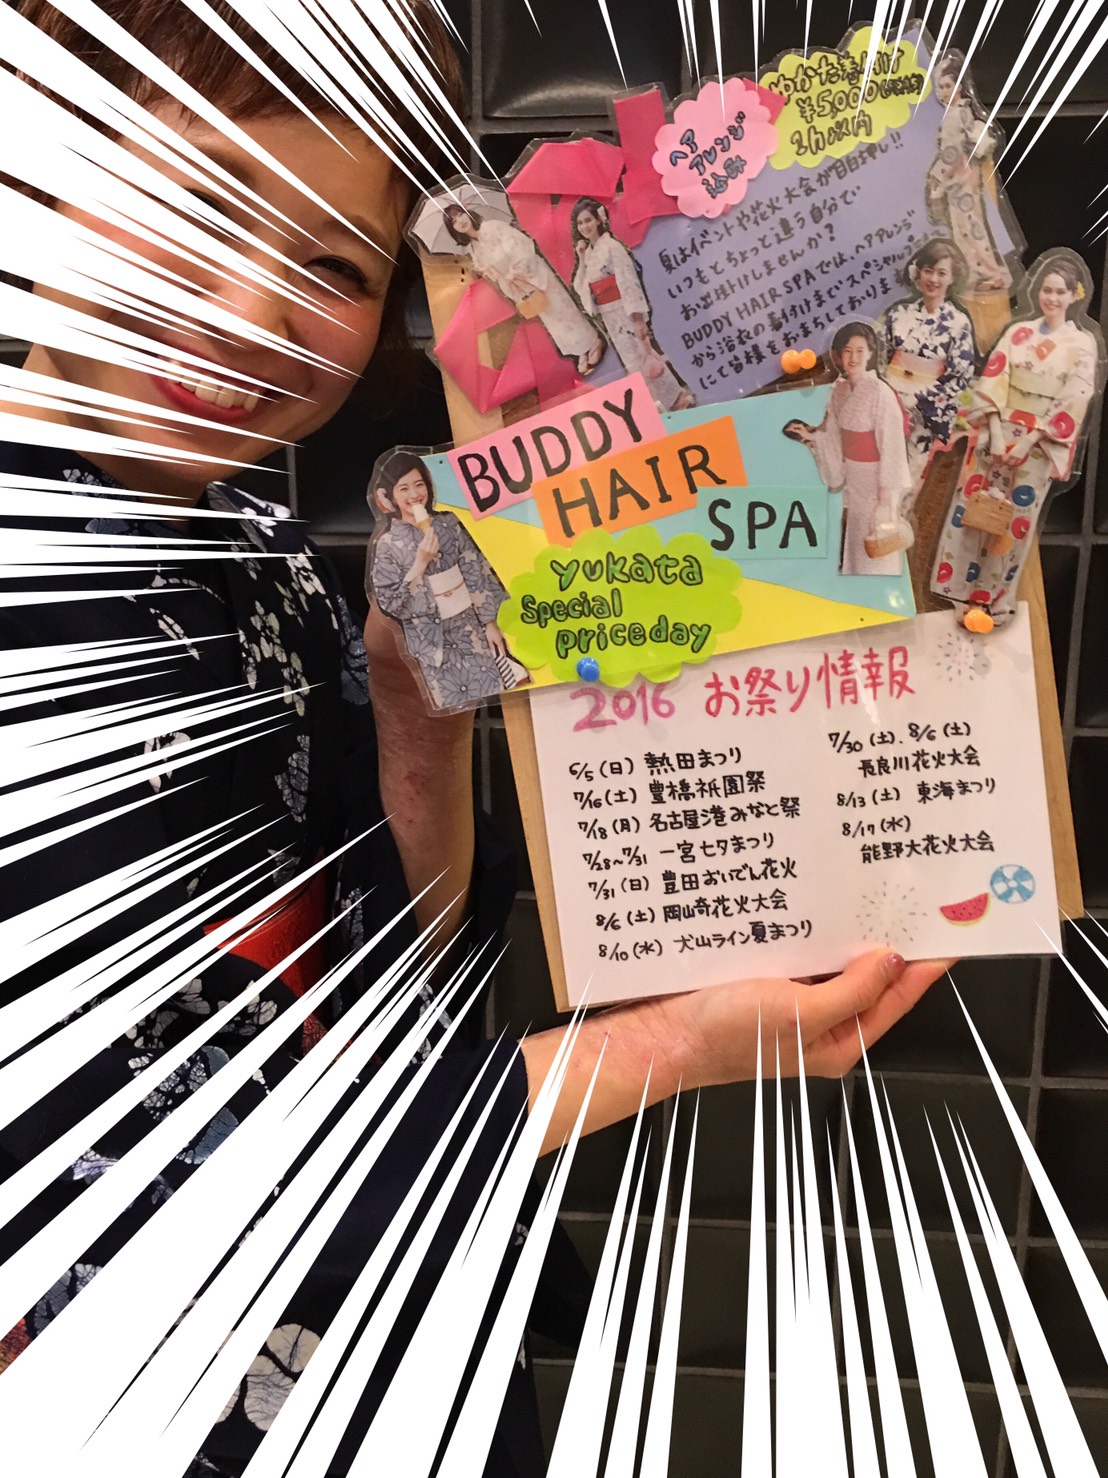 ヘア
アレンジ
込み
ゆかた着付け
¥5,000
2h以内
夏はイベントや花火大会が目白押し!!
いつもとちょっと違う自分で
お出掛けしませんか?
BUDDY HAIR SPAでは、ヘアアレンジ
から浴衣の着付けまでスペシャル
にて皆様をおまちしております
BUDDY
HAIR
SPA
yukata
Special
price day
2016 お祭り情報
6/5(日) 熱田まつり
7/16(土) 豊橋祇園祭
7/18(月) 名古屋港みなと祭
7/28~7/31 一宮七夕まつり
7/31(日) 豊田おいでん花火
8/6(土) 岡山奇花火大会
8/10(水) 犬山ライン夏まつり
7/30(土).8/6(土)
長良川花火大会
8/13(土) 東海まつり
8/17(水)
熊野大花火大会